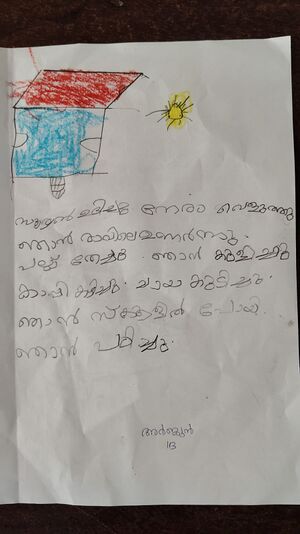 സൂര്യൻ ഉദിച്ചു നേരം വെളുത്തു
ഞാൻ രാവിലെ ഉണർന്നു.
പല്ലു തേച്ചു. ഞാൻ കുളിച്ചു
കാപ്പി കുടിച്ചു. ചായ കുടിച്ചു.
ഞാൻ സ്കൂളിൽ പോയി.
ഞാൻ പഠിച്ചു.
അർജുൻ
1B